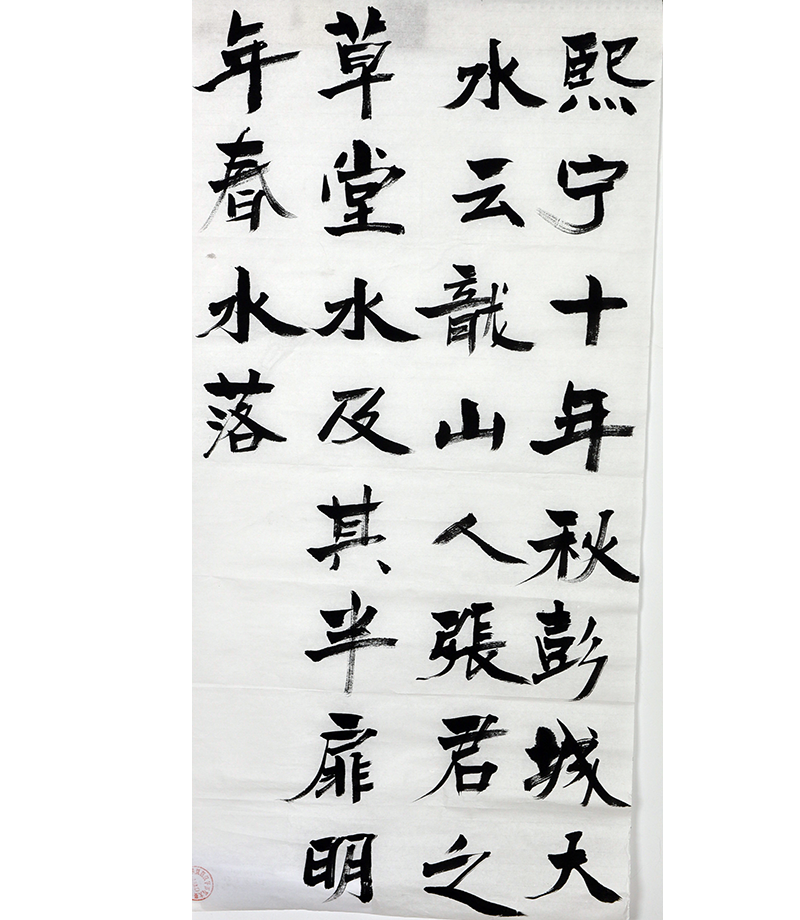 熙宁十年秋彭城天
水云龍山人張君之
草堂水及其半扉明
年春水落